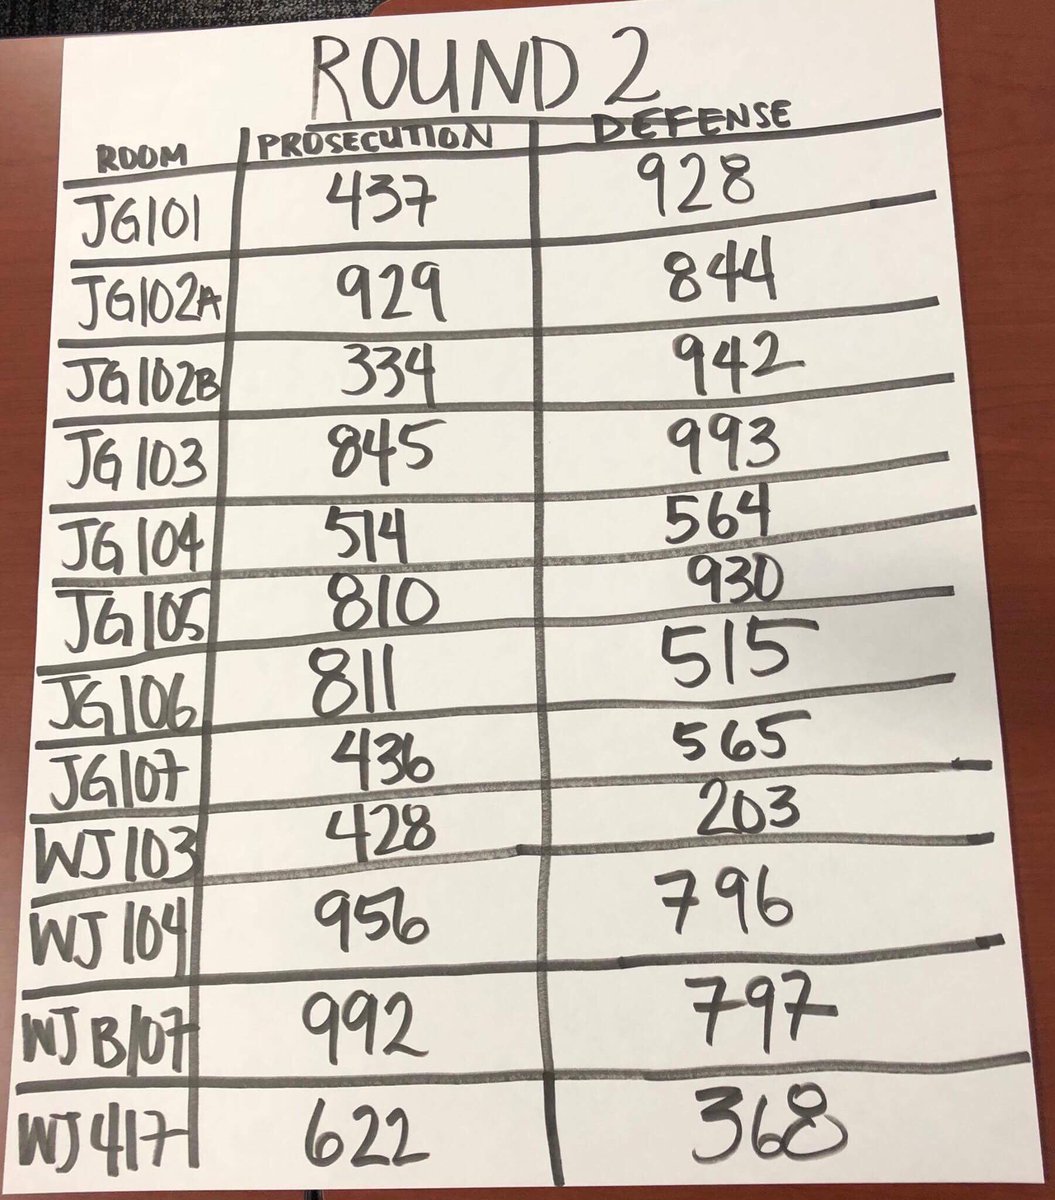 ROUND 2
ROOM PROSECUTION DEFENSE
JG101 437 928
JG102A 929 844
JG102B 334 942
JG103 845 993
JG104 514 564
JG105 810 930
JG106 811 515
JG107 436 565
WJ103 428 203
WJ104 956 796
WJB107 992 797
WJ417 622 368